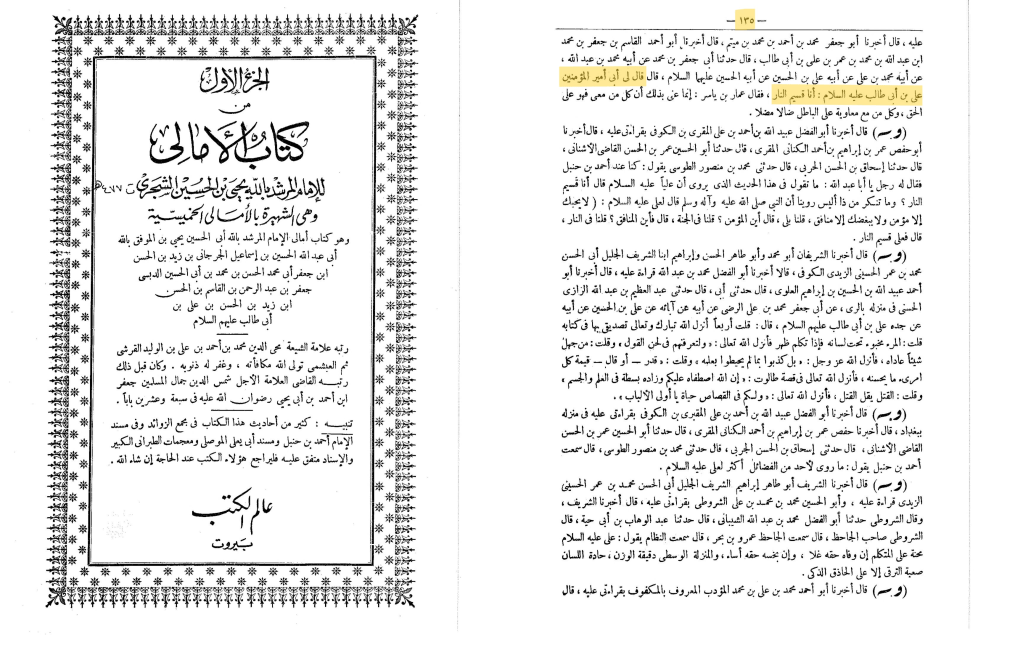 الجزء الأول
من
كتاب الأمالى
للإمام المرشد بالله يحيى بن الحسين الشجرى ت ٤٧٧ هـ
وهى الشهيرة بالأمالى الخميسية
وهو كتاب أمالى الإمام المرشد بالله أبى الحسين يحيى بن الموفق بالله
أبى عبد الله الحسين بن إسماعيل الجرجانى بن زيد بن الحسن
ابن جعفر بن أبى محمد الحسن بن محمد بن أبى الحسين الدبسى
جعفر بن عبد الرحمن بن القاسم بن الحسن
ابن زيد بن الحسن بن على بن
أبى طالب عليهم السلام
رتبه علامة الشيعة محى الدين محمد بن أحمد بن على بن الوليد القرشى
ثم العبشمى تولى الله مكافأته ، وغفر له ذنوبه . وكان قبل ذلك
رتبه القاضى العلامة الأجل شمس الدين جمال المسلمين جعفر
ابن أحمد بن أبى يحيى رضوان الله عليه فى سبعة وعشرين باباً .
تنبيه : كثير من أحاديث هذا الكتاب فى مجمع الزوائد وفى مسند
الإمام أحمد بن حنبل ومسند أبى يعلى الموصلى ومعجمات الطبرانى الكبير
والإسناد متفق عليه فليراجع هؤلاء الكتب عند الحاجة إن شاء الله .
عالم الكتب
بيروت
— ١٣٥ —
عليه ، قال أخبرنا أبو جعفر محمد بن أحمد بن محمد بن ميثم ، قال أخبرنا أبو أحمد القاسم بن جعفر بن محمد
ابن عبد الله بن محمد بن عمر بن على بن أبى طالب ، قال حدثنا أبى جعفر بن محمد عن أبيه محمد بن عبد الله ،
عن أبيه محمد بن على عن أبيه على بن الحسين عن أبيه الحسين عليهما السلام ، قال قال لى أبى أمير المؤمنين
على بن أبى طالب عليه السلام : أنا قسيم النار ، فقال عمار بن ياسر : إنما عنى بذلك أن كل من معى فهو على
الحق ، وكل من مع معاوية على الباطل ضالا مضلا .
( وبه ) قال أخبرنا أبو الفضل عبيد الله بن أحمد بن على المقرى بن الكوفى بقراءتى عليه ، قال أخبرنا
أبو حفص عمر بن إبراهيم بن أحمد الكنانى المقرى ، قال حدثنا أبو الحسين عمر بن الحسن القاضى الأشنانى ،
قال حدثنا إسحاق بن الحسن الحربى ، قال حدثنى محمد بن منصور الطوسى يقول : كنا عند أحمد بن حنبل
فقال له رجل يا أبا عبد الله : ما تقول فى هذا الحديث الذى يروى أن علياً عليه السلام قال أنا قسيم
النار ؟ وما تنكر من ذا أليس روينا أن النبى صلى الله عليه وآله وسلم قال لعلى عليه السلام : ( لا يحبك
إلا مؤمن ولا يبغضك إلا منافق ، قلنا بلى ، قال أين المؤمن ؟ قلنا فى الجنة ، قال فأين المنافق ؟ قلنا فى النار ،
قال فعلى قسيم النار .
( وبه ) قال أخبرنا الشريفان أبو محمد وأبو طاهر الحسن وإبراهيم ابنا الشريف الجليل أبى الحسن
محمد بن عمر الحسينى الزيدى الكوفى ، قالا أخبرنا أبو الفضل محمد بن عبد الله قراءة عليه ، قال أخبرنا أبو
أحمد عبيد الله بن الحسين بن إبراهيم العلوى ، قال حدثنى أبى ، قال حدثنى عبد العظيم بن عبد الله الرازى
الحسنى فى منزله بالرى ، عن أبى جعفر محمد بن على الرضى عن أبيه عن آبائه عن على بن الحسين عن أبيه
عن جده على بن أبى طالب عليهم السلام ، قال : قلت أربعاً أنزل الله تبارك وتعالى تصديق بها فى كتابه
قلت : المرء مخبوء تحت لسانه فإذا تكلم ظهر فأنزل الله تعالى : « ولتعرفنهم فى لحن القول ، وقلت : من جهل
شيئاً عاداه ، فأنزل الله عز وجل : « بل كذبوا بما لم يحيطوا بعلمه ، وقلت : « قدر — أو قال — قيمة كل
امرىء ما يحسنه ، فأنزل الله تعالى فى قصة طالوت : « إن الله اصطفاه عليكم وزاده بسطة فى العلم والجسم ،
وقلت : القتل يقل القتل ، فأنزل الله تعالى : « ولكم فى القصاص حياة يا أولى الألباب » .
( وبه ) قال أخبرنا أبو الفضل عبيد الله بن أحمد بن على المقبرى بن الكوفى بقراءتى عليه فى منزله
ببغداد ، قال حدثنا حفص عمر بن إبراهيم بن أحمد الكنانى المقرى ، قال حدثنا أبو الحسين عمر بن الحسن
القاضى الأشنانى ، قال حدثنى إسحق بن الحسن الحربى ، قال حدثنى محمد بن منصور الطوسى ، قال سمعت
أحمد بن حنبل يقول : ما روى لأحد من الفضائل أكثر لعلى عليه السلام .
( وبه ) قال أخبرنا الشريف أبو طاهر إبراهيم الشريف الجليل أبى الحسن محمد بن عمر الحسينى
الزيدى قراءة عليه ، وأبو الحسين محمد بن محمد بن على الشروطى بقراءتى عليه ، قال أخبرنا الشريف ،
وقال الشروطى حدثنا أبو الفضل محمد بن عبد الله الشيبانى ، قال حدثنا عبد الوهاب بن أبى حية ، قال
الشروطى صاحب الجاحظ ، قال سمعت الجاحظ عمرو بن بحر ، قال سمعت النظام يقول : على عليه السلام
محنة على المتكلم إن وفاه حقه غلا ، وإن بخسه حقه أساء ، والمنزلة الوسطى دقيقة الوزن ، حادة اللسان
صعبة الترقى إلا على الحاذق الذكى .
( وبه ) قال أخبرنا أبو أحمد محمد بن على بن محمد المؤدب المعروف بالمكفوف بقراءتى عليه ، قال